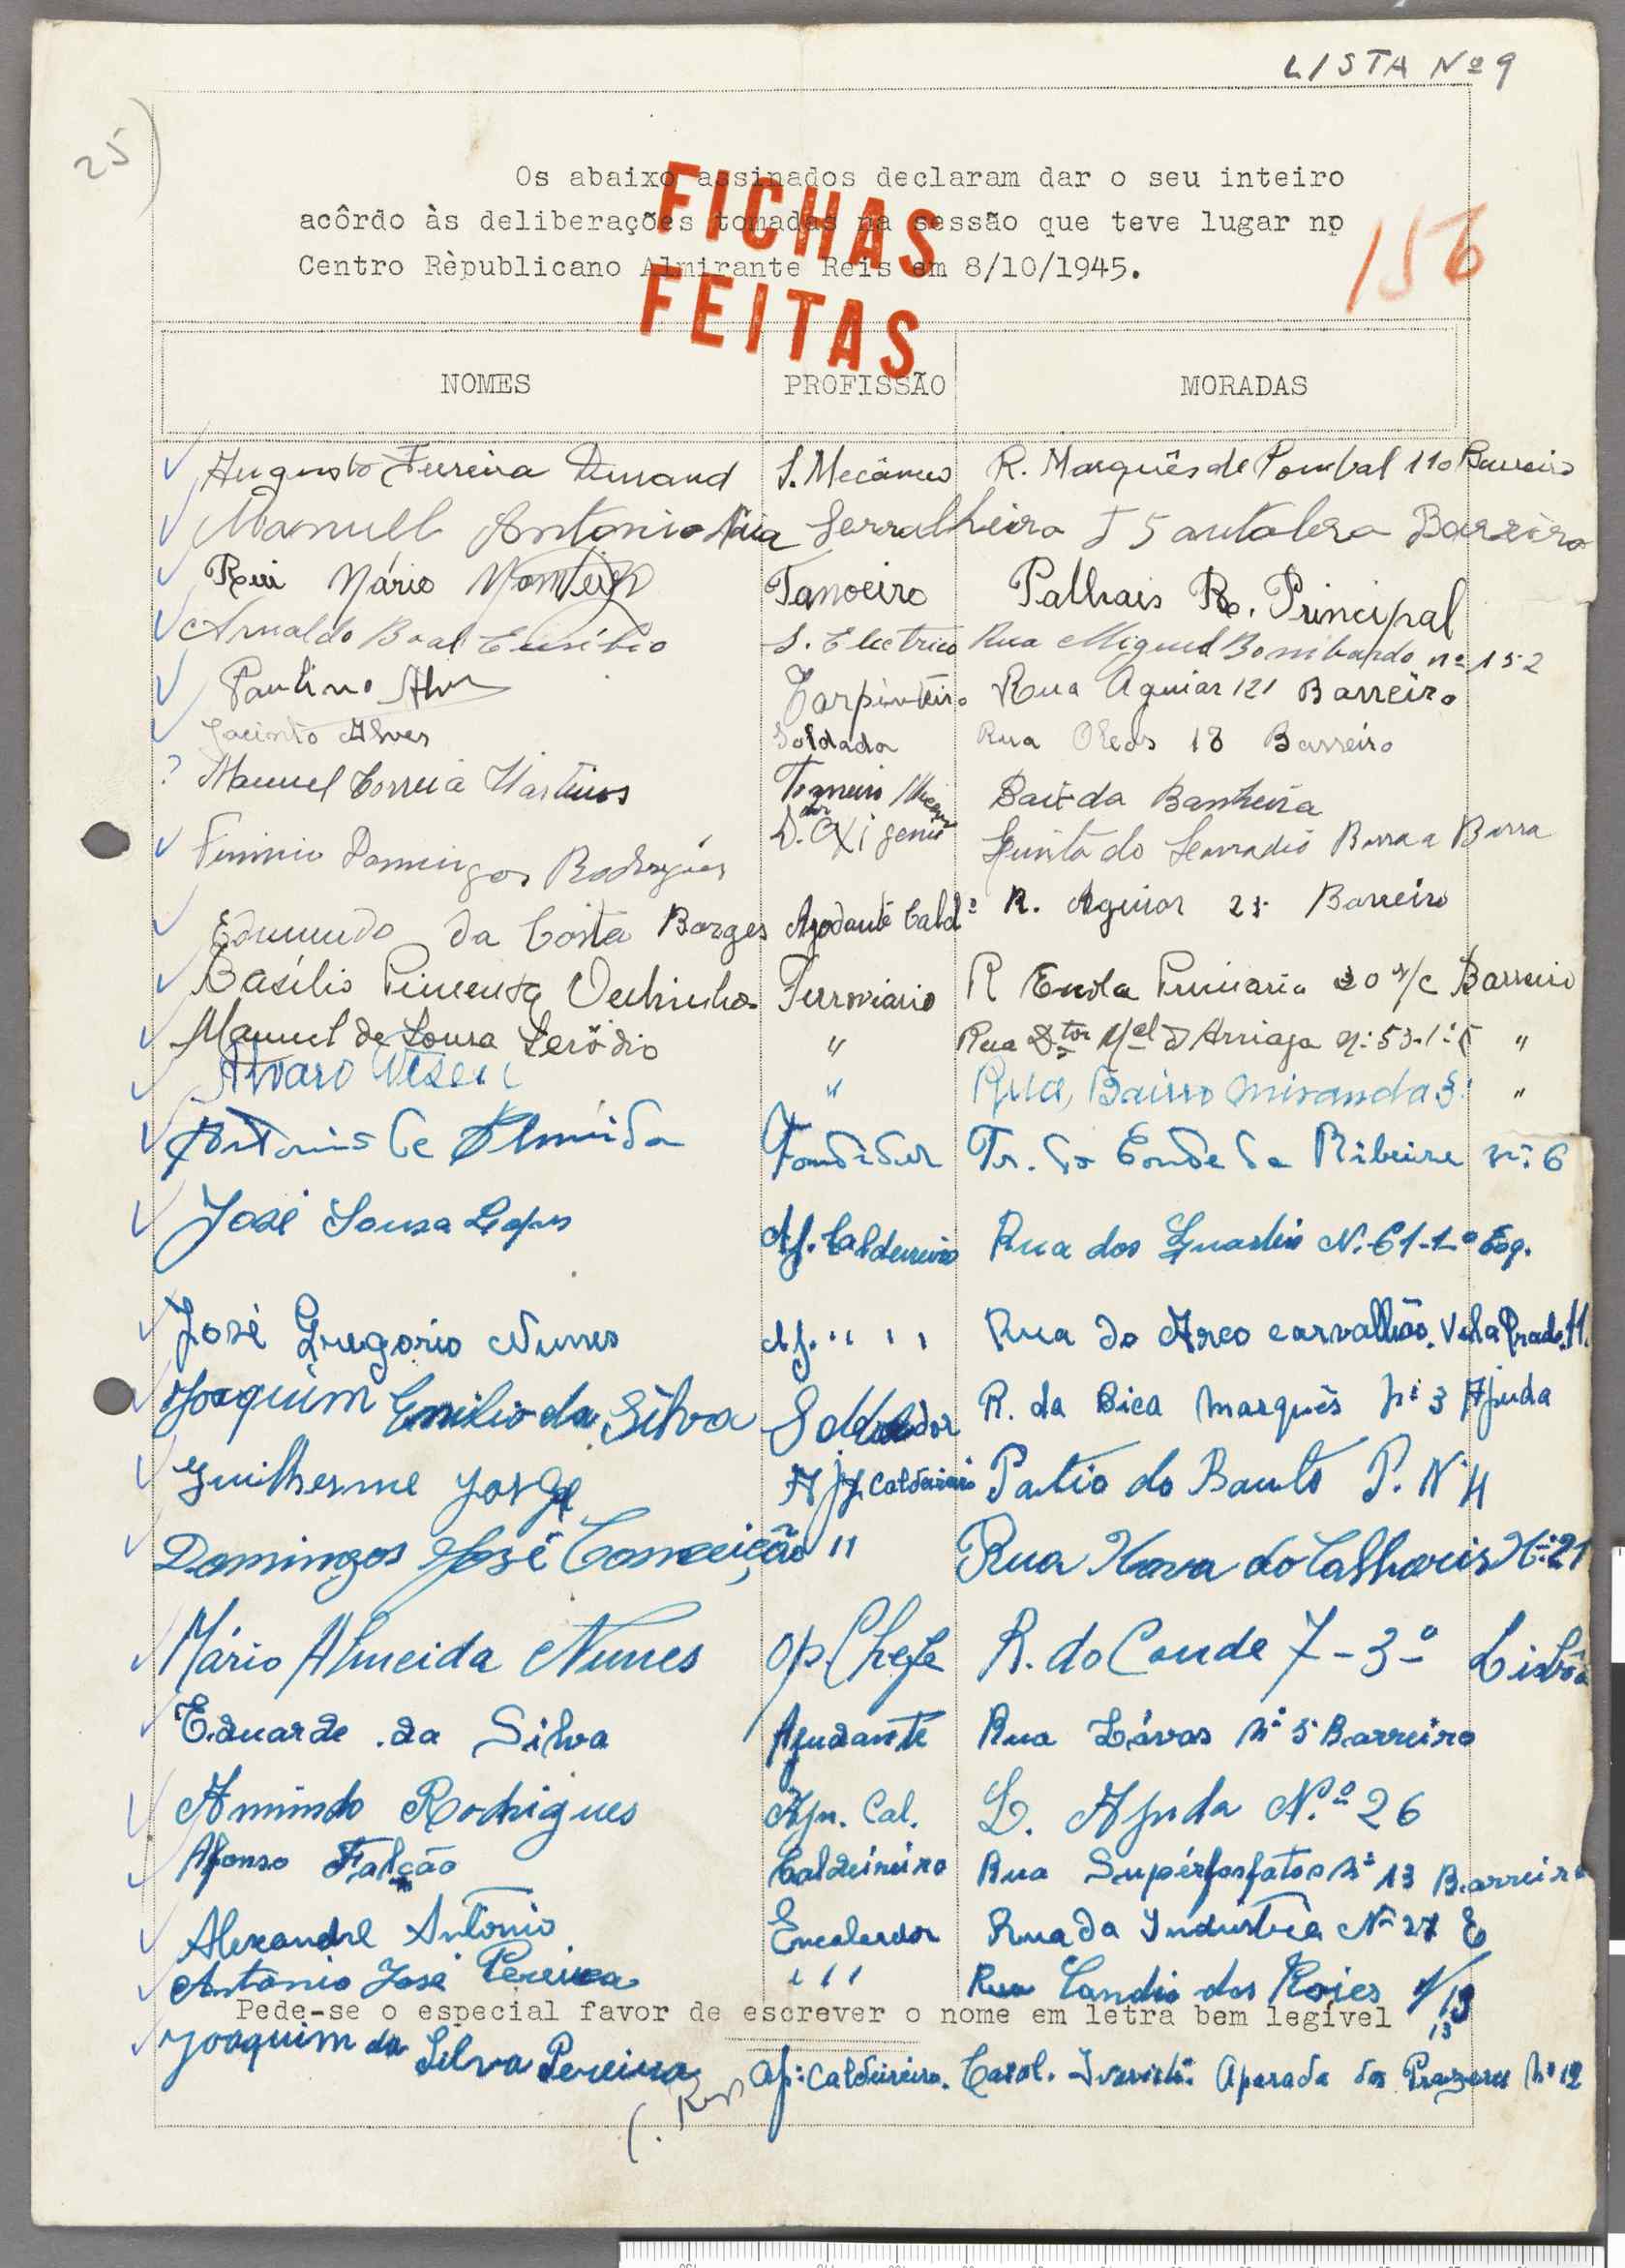 LISTA Nº 9
25)
Os abaixo assinados declaram dar o seu inteiro
acôrdo às deliberações tomadas na sessão que teve lugar no
Centro Rèpublicano Almirante Reis em 8/10/1945.
FICHAS
FEITAS
156
NOMES PROFISSÃO MORADAS
Augusto Ferreira Durand S. Mecânico R. Marquês de Pombal 110 Barreiro
Manuell Antonio Serralheiro Barreiro
Rui Mário Monteiro Tanoeiro Palhais R. Principal
Arnaldo Boal Eusébio S. Electrico Rua Miguel Bombarda nº 152
Paulino Alves Carpinteiro Rua Aguiar 121 Barreiro
Jacinto Alves Soldador Rua 18 Barreiro
? Manuel Correia Martins Baixa da Banheira
Firmino Domingos Rodrigues Quinta do Lavradio Barra a Barra
Edmundo da Costa Borges Ajodante Cald. R. Aguiar 25 Barreiro
Basílio Pimenta Ferroviario R Escola Primaria 20 r/c Barreiro
Manuel de Sousa Serôdio " Rua Dtor Mel d'Arriaga nº 53-1º "
Alvaro " Rua, Bairro Miranda 3 "
Antonio de Almeida Fundidor Tr. do Conde da Ribeira nº 6
José Sousa Lopes Aj. Caldeireiro Rua dos Quartéis N. 61-1º Esq.
José Gregorio Nunes Aj. " " Rua do Arco carvalhão. Vila Prado. 11.
Joaquim Emilio da Silva Soldador R. da Bica Marquês nº 3 Ajuda
Guilherme Jorge Aj. Caldeireiro Patio do P. Nº 4
Domingos José Conceição " Rua Nova do Calhariz Nº 21
Mário Almeida Nunes Op. Chefe R. do Conde 7-3º Lisbôa
Eduarde da Silva Ajudante Rua Lávas nº 5 Barreiro
Armindo Rodrigues Aju. Cal. L. Ajuda N.º 26
Afonso Falcão Caldeireiro Rua Supérfosfatos nº 13 Barreiro
Alexandre António Encalcador Rua da Industria Nº 27 E
António José Pereira " Rua 13
Pede-se o especial favor de escrever o nome em letra bem legível
13
Joaquim da Silva Pereira aj: Caldeireiro. Parada dos Prazeres Nº 12